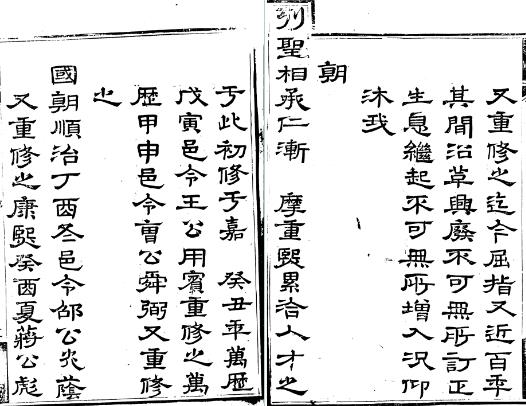 于此初修于嘉 癸丑年萬歷
戊寅邑令王公用賓重修之萬
歷甲申邑令曹公舜弼又重修
之
國朝順治丁酉冬邑令邵公光蔭
又重修之康熙癸酉夏蔣公彪
又重修之迄今屈指又近百年
其間沿革興廢不可無所訂正
生息繼起不可無所增入況仰
沐我
朝
列聖相承仁漸 摩重熙累洽人才之